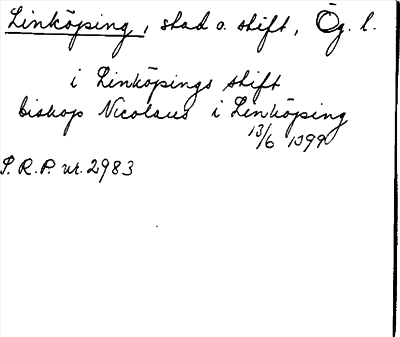 Linköping, stad o. stift, Ög. l.
i Linköpings stift
biskop Nicolaus i Linköping
13/6 1399
S.R.P. nr. 2983